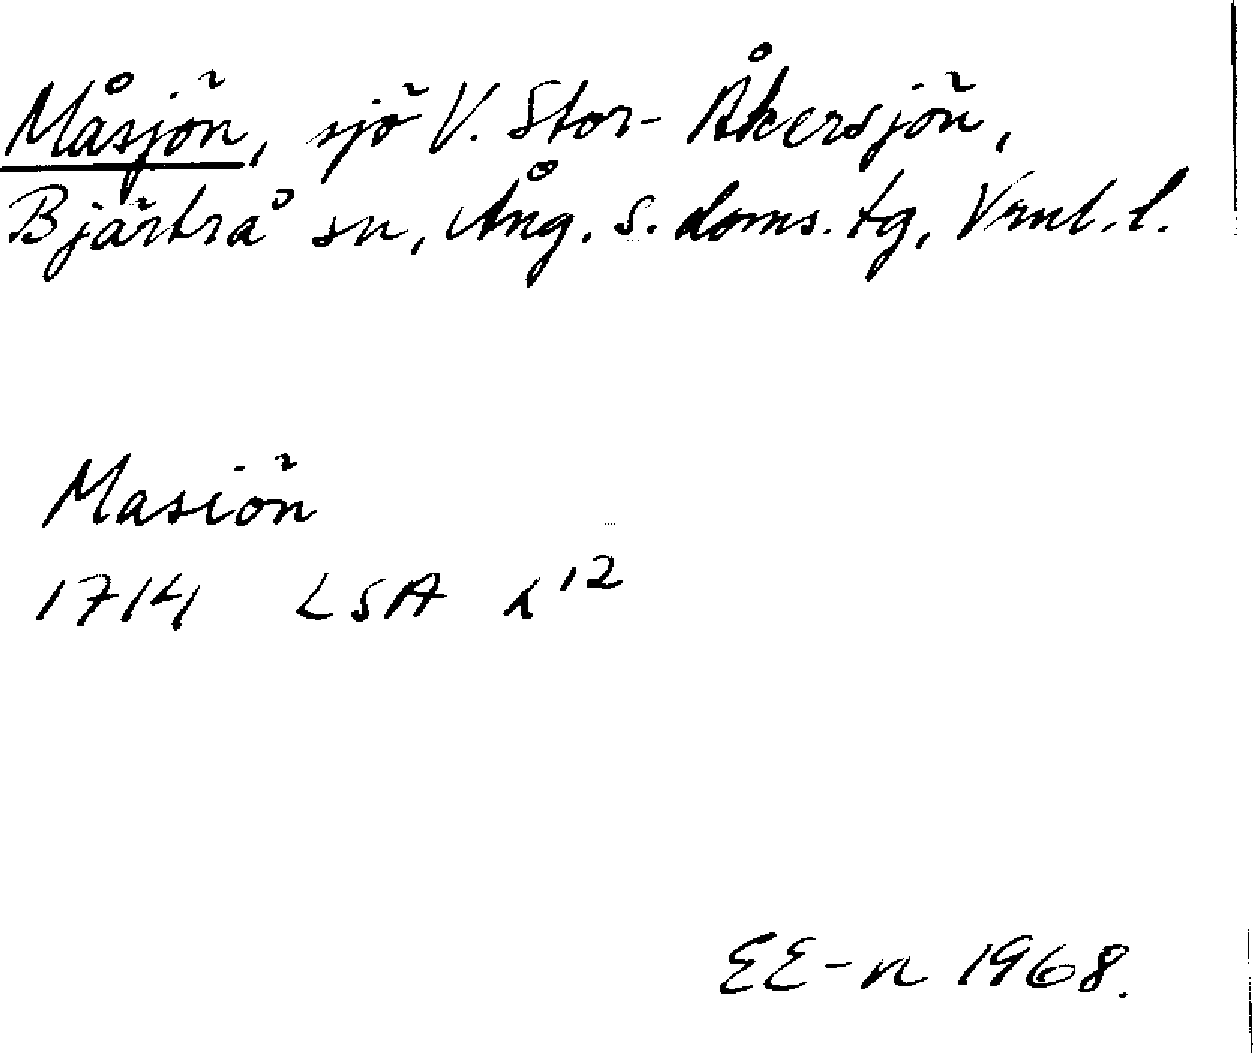 Måsjön, sjö V. Stor-Åkersjön,
Bjärtrå sn, Ång. s. doms. tg, Vrnl. l.
Masiön
1714 LSA 12
EE-n 1968.